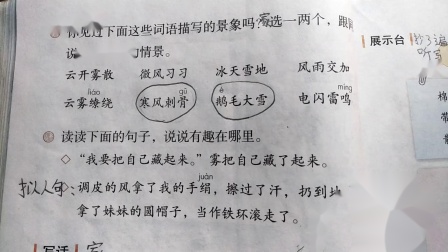 你见过下面这些词语描写的景象吗？选一两个，跟
家
说 情景。
展示台
云开雾散 微风习习 冰天雪地 风雨交加
听写
liáo gǔ é míng
云雾缭绕 寒风刺骨 鹅毛大雪 电闪雷鸣
读读下面的句子，说说有趣在哪里。
◇“我要把自己藏起来。”雾把自己藏了起来。
juàn
拟人句：调皮的风拿了我的手绢，擦过了汗，扔到地
拿了妹妹的圆帽子，当作铁环滚走了。
写话 家